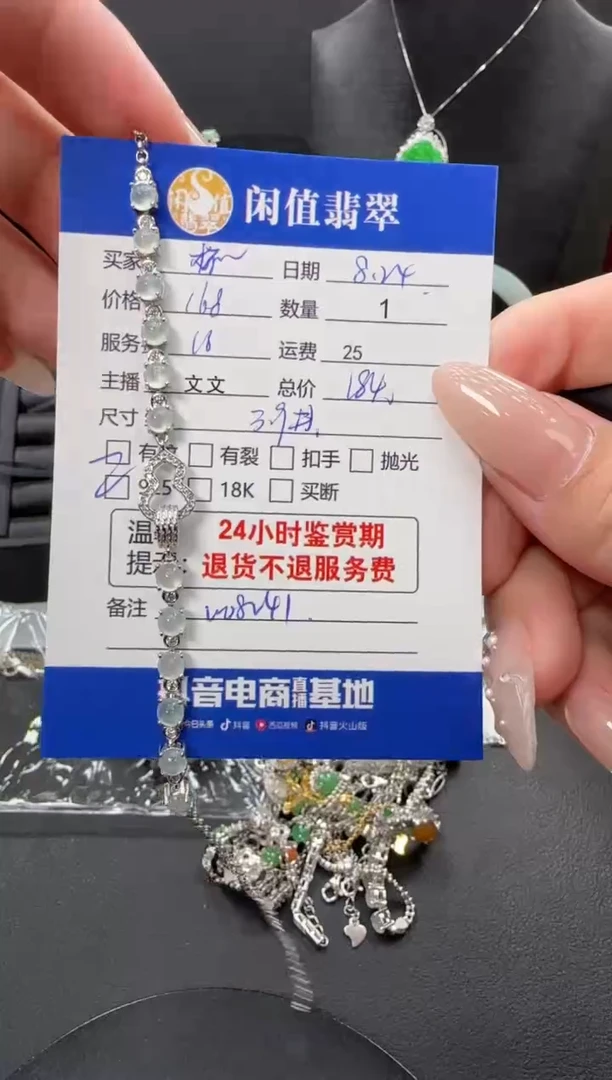 闲值翡翠
买家 日期 8.24
价格 168 数量 1
服务 16 运费 25
主播 文文 总价 184
尺寸
有 有裂 扣手 抛光
925 18K 买断
温 24小时鉴赏期
提 : 退货不退服务费
备注
音电商直播基地
今日头条 抖音 西瓜视频 抖音火山版